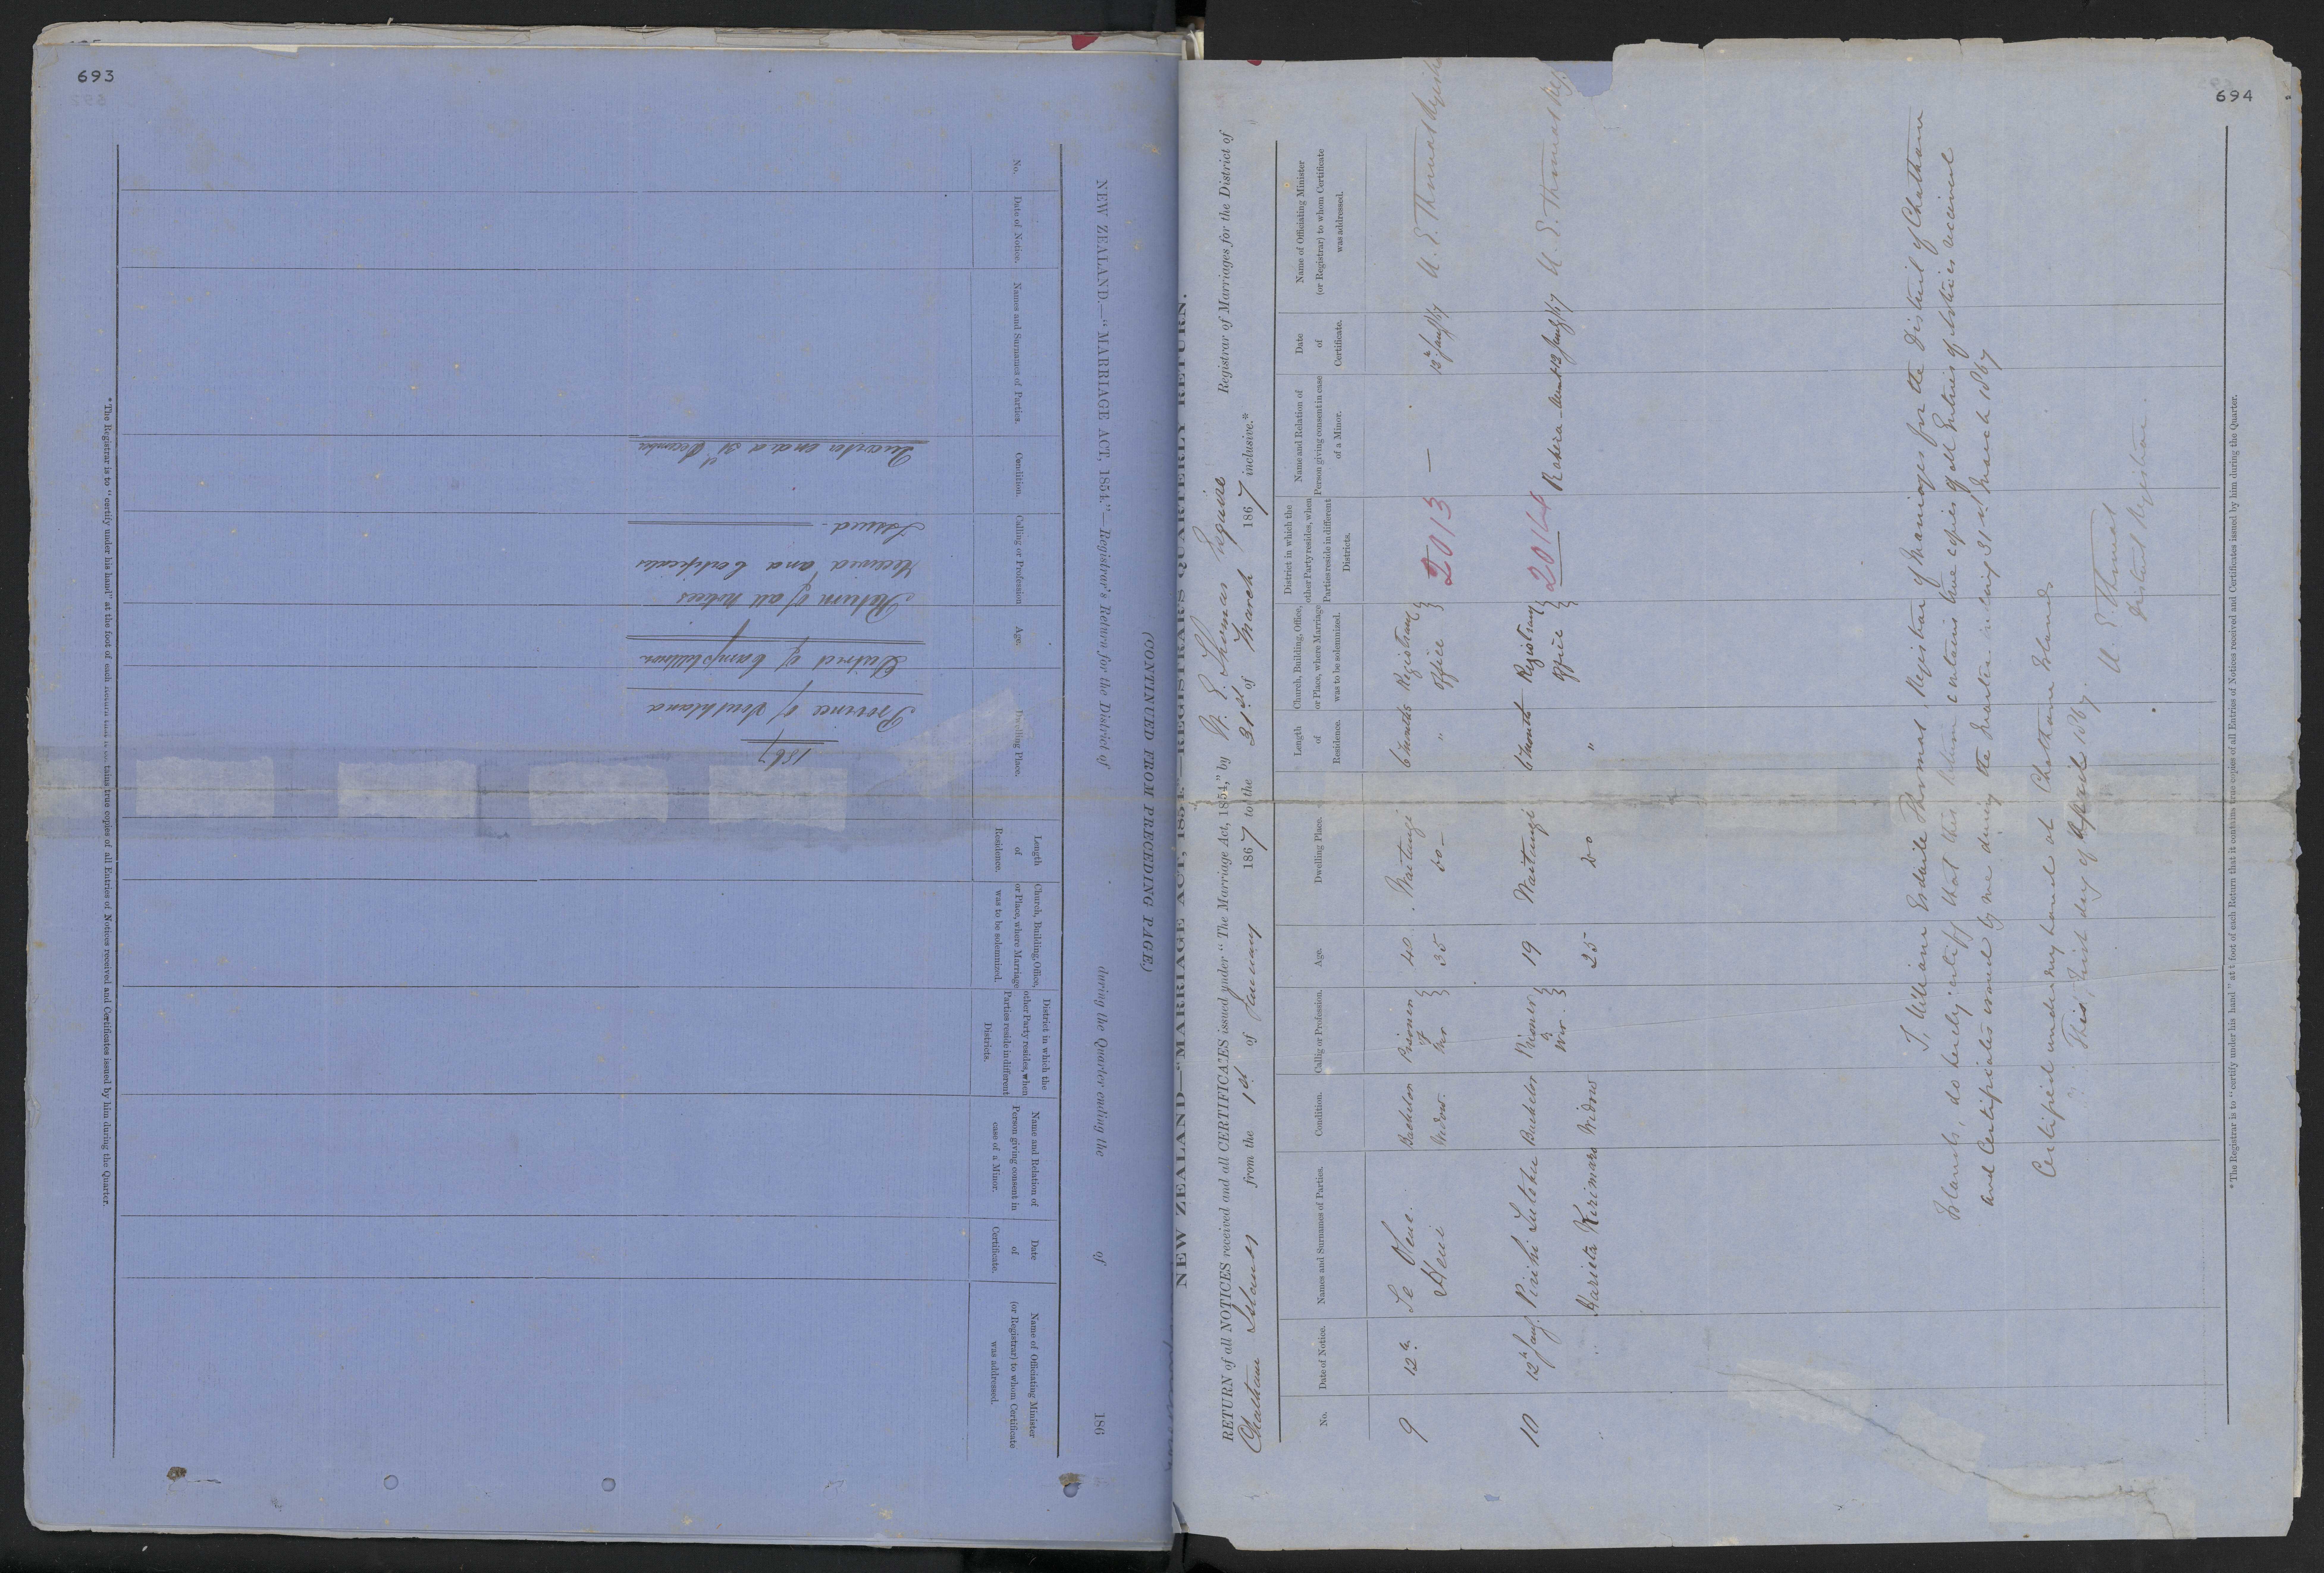 693
NEW ZEALAND.—"MARRIAGE ACT, 1854."—Registrar's Return for the District of during the Quarter ending the of 186
(CONTINUED FROM PRECEDING PAGE.)
No.
Date of Notice.
Names and Surnames of Parties.
Condition.
Calling or Profession
Age.
Dwelling Place.
Length
of
Residence.
Church, Building, Office,
or Place, where Marriage
was to be solemnized.
District in which the
other Party resides, when
Parties reside in different
Districts.
Name and Relation of
Person giving consent in
case of a Minor.
Date
of
Certificate.
Name of Officiating Minister
(or Registrar) to whom Certificate
was addressed.
1867
Province of Southland
District of Campbelltown
Return of all notices
received and Certificates
Issued
Quarter ended 31st December
*The Registrar is to "certify under his hand" at the foot of each Return that it contains true copies of all Entries of Notices received and Certificates issued by him during the Quarter.
694
NEW ZEALAND—"MARRIAGE ACT, 1854"—REGISTRAR'S QUARTERLY RETURN.
RETURN of all NOTICES received and all CERTIFICATES issued under "The Marriage Act, 1854," by W. E. Thomas Esquire Registrar of Marriages for the District of
Chatham Islands from the 1st of January 1867 to the 31st of March 1867 inclusive.*
No.
Date of Notice.
Names and Surnames of Parties.
Condition.
Callig or Profession.
Age.
Dwelling Place.
Length
of
Residence.
Church, Building, Office,
or Place, where Marriage
was to be solemnized.
District in which the
other Party resides, when
Parties reside in different
Districts.
Name and Relation of
Person giving consent in case
of a Minor.
Date
of
Certificate.
Name of Officiating Minister
(or Registrar) to whom Certificate
was addressed.
9 12th Te Bachelor Prisoner 40 Waitangi 6 Months Registrars 2013 — 13th Jany/67 W. E. Thomas
Heni Widow of War 35 do " Office
10 12th Jany Bachelor Prisoner 19 Waitangi 6 Month Registrars 2014 Aunt 13 Jany/67 W. E. Thomas
" " Harieta Widow of War 25 do " Office
I, William Esdaile Thomas, Registrar of Marriages for the District of Chatham
Islands, do hereby certify that this Return contains true copies of all Entries of Notices received
and Certificates issued by me during the Quarter ending 31st March 1867
Certified under my hand at Chatham Islands
This first day of April 1867.
W. E. Thomas
District Registrar.
*The Registrar is to "certify under his hand" at foot of each Return that it contains true copies of all Entries of Notices received and Certificates issued by him during the Quarter.